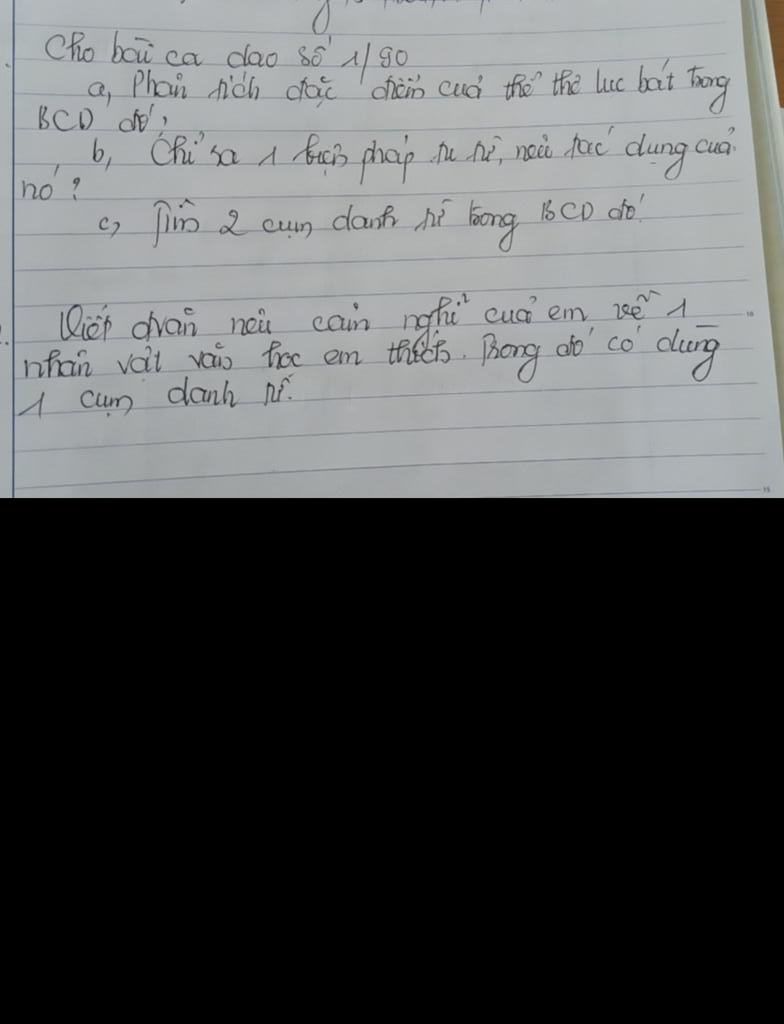 Cho bài ca dao số 1/90
a, Phân tích đặc điểm của thể thơ lục bát trong
BCD đó,
b, Chỉ ra 1 biện pháp tu từ, nêu tác dụng của
nó?
c, Tìm 2 cụm danh từ trong BCD đó
Viết đoạn nêu cảm nghĩ của em về 1
nhân vật văn học em thích. Trong đó có dùng
1 cụm danh từ.